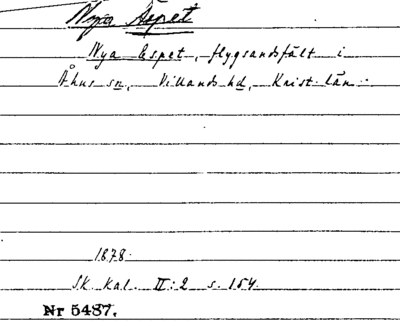 Nya Äspet
Nya Espet, flygsandsfält i
Åhus sn, Villands hd, Krist. län.
1878.
Sk. Kal. II:2 s. 154.
Nr 5487.